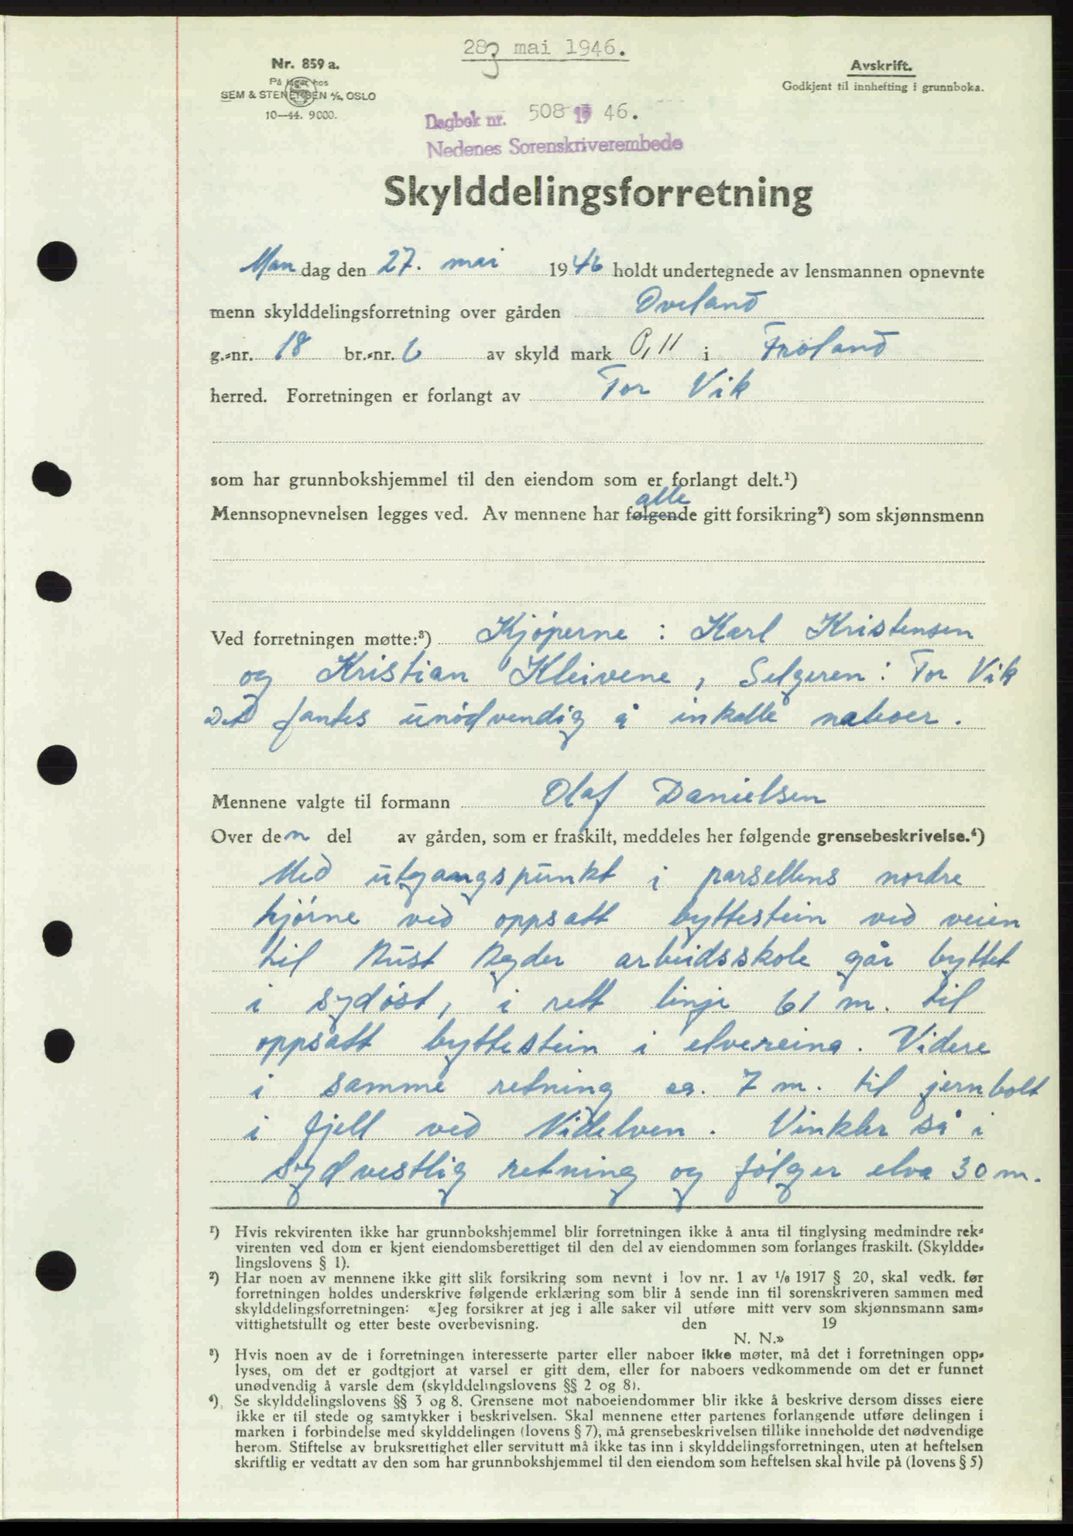 28 mai 1946.
Nr. 859 a.
På lager hos
SEM & STENERSEN A/S, OSLO
10—44. 9000.
Avskrift.
Godkjent til innhefting i grunnboka.
Dagbok nr. 508 19 46.
Nedenes Sorenskriverembede
Skylddelingsforretning
Mandag den 27. mai 1946 holdt undertegnede av lensmannen opnevnte
menn skylddelingsforretning over gården Oveland
g.-nr. 18 br.-nr. 6 av skyld mark 0,11 i Froland
herred. Forretningen er forlangt av Tor Vik
som har grunnbokshjemmel til den eiendom som er forlangt delt.¹)
alle
Mennsopnevnelsen legges ved. Av mennene har følgende gitt forsikring²) som skjønnsmenn
Ved forretningen møtte:³) Kjøperne : Karl Kristensen
og Kristian Kleivene, Selgeren : Tor Vik
Det fantes unödvendig å inkalle naboer.
Mennene valgte til formann Olaf Danielsen
Over den del av gården, som er fraskilt, meddeles her følgende grensebeskrivelse.⁴)
Med utgangspunkt i parsellens nordre
hjörne ved oppsatt byttestein ved veien
til Aust Agder arbeidsskole går byttet
i sydöst, i rett linje 61 m. til
oppsatt byttestein i elvereina. Videre
i samme retning ca. 7 m. til jernbolt
i fjell ved Nidelven. Vinkler så i
sydvestlig retning og följer elva 30 m.
¹) Hvis rekvirenten ikke har grunnbokshjemmel blir forretningen ikke å anta til tinglysing medmindre rek-
virenten ved dom er kjent eiendomsberettiget til den del av eiendommen som forlanges fraskilt. (Skyldde-
lingslovens § 1).
²) Har noen av mennene ikke gitt slik forsikring som nevnt i lov nr. 1 av 1/6 1917 § 20, skal vedk. før
forretningen holdes underskrive følgende erklæring som blir å sende inn til sorenskriveren sammen med
skylddelingsforretningen: «Jeg forsikrer at jeg i alle saker vil utføre mitt verv som skjønnsmann sam-
vittighetsfullt og etter beste overbevisning. den 19
N. N.»
³) Hvis noen av de i forretningen interesserte parter eller naboer ikke møter, må det i forretningen opp-
lyses, om det er godtgjort at varsel er gitt dem, eller for naboers vedkommende om det er funnet
unødvendig å varsle dem (skylddelingslovens §§ 2 og 8).
⁴) Se skylddelingslovens §§ 3 og 8. Grensene mot naboeiendommer blir ikke å beskrive dersom disses eiere
ikke er til stede og samtykker i beskrivelsen. Skal mennene etter partenes forlangende utføre delingen i
marken i forbindelse med skylddelingen (lovens § 7), må grensebeskrivelsen tillike inneholde det nødvendige
herom. Stiftelse av bruksrettighet eller servitutt må ikke tas inn i skylddelingsforretningen, uten at heftelsen
skriftlig er vedtatt av den som har grunnbokshjemmel til den eiendom som heftelsen skal hvile på (lovens § 5)